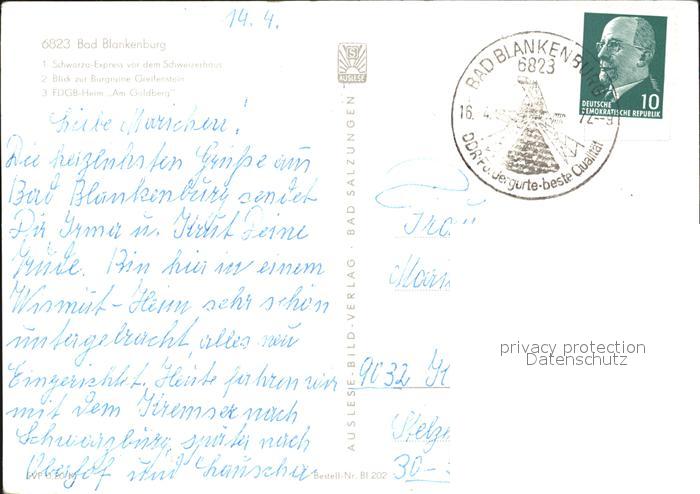 14. 4.
6823 Bad Blankenburg
1 Schwarza-Express vor dem Schweizerhaus
2 Blick zur Burgruine Greifenstein
3 FDGB-Heim „Am Goldberg"
S
AUSLESE
BAD BLANKENBURG
6823
16. 4. 72--9
DDR-Fördergurte-beste Qualität
DEUTSCHE
DEMOKRATISCHE REPUBLIK
10
Liebe Mariechen!
Die herzlichsten Grüße aus
Bad Blankenburg sendet
Dir Irma u. Kurt Deine
Trude. Bin hier in einem
Wismut-Heim sehr schön
untergebracht, alles neu
Eingerichtet. Heute fahren wir
mit dem Kremser nach
Schwarzburg, später nach
Oberhof und Lauscha.
AUSLESE-BILD-VERLAG · BAD SALZUNGEN
Frau
Mari
9032 K
Stelze
30-
privacy protection
Datenschutz
Bestell-Nr. BI 202